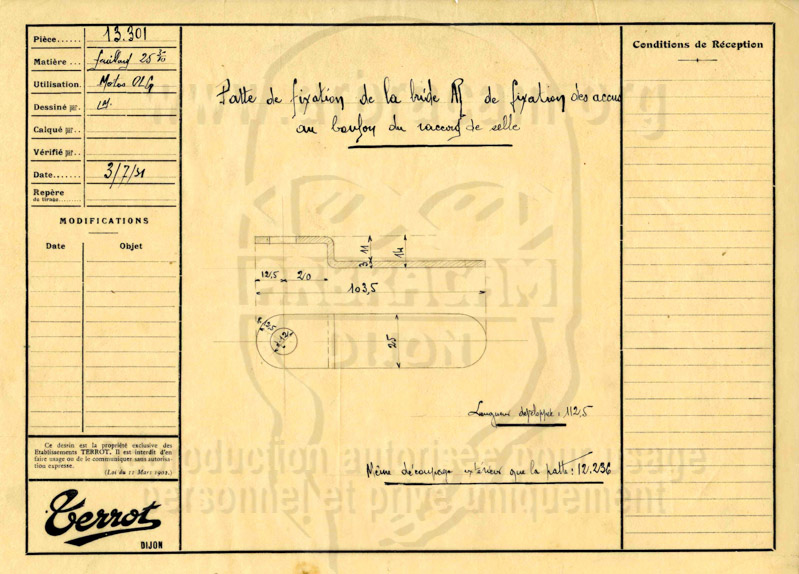 Pièce...... 13.301
Matière ... feuillard 25 3/10
Utilisation. Motos OLG
Dessiné par.
Calqué par..
Vérifié par..
Date....... 3/7/31
Repère
du tirage
MODIFICATIONS
Date Objet
Ce dessin est la propriété exclusive des
Etablissements TERROT. Il est interdit d'en
faire usage ou de le communiquer sans autorisa-
tion expresse.
(Loi du 11 Mars 1902.)
Terrot
DIJON
Patte de fixation de la bride AR de fixation des accus
au boulon du raccord de selle
11
3
14
12,5 20
103,5
12
25
Longueur développée : 112,5
Même découpage extérieur que la patte : 12.236
Conditions de Réception
ARKRAGAM
DIJON
personnel et privé uniquement